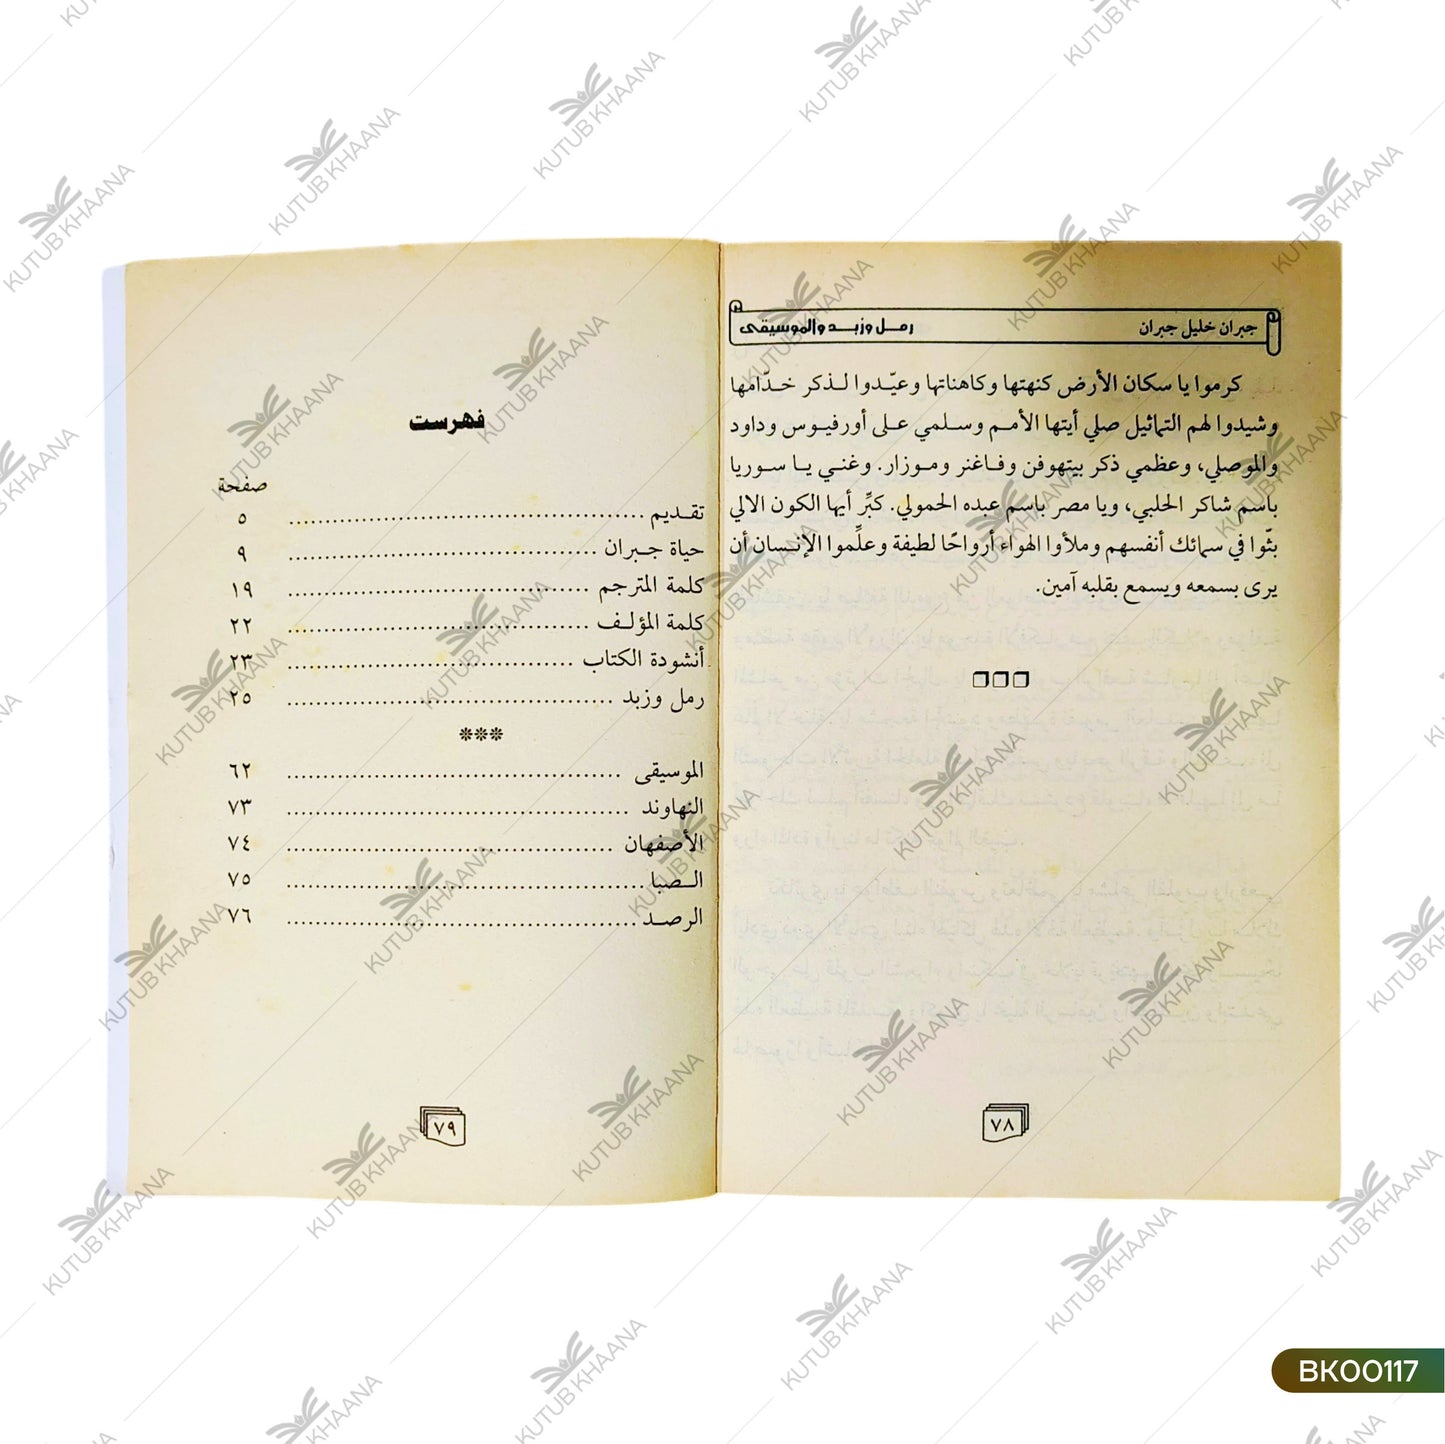 جبران خليل جبران رمل وزبد والموسيقى
كرموا يا سكان الأرض كنهتها وكاهناتها وعيّدوا لذكر خدّامها
وشيدوا لهم التماثيل صلي أيتها الأمم وسلمي على أورفيوس وداود
والموصلي، وعظمي ذكر بيتهوفن وفاغنر وموزار. وغني يا سوريا
باسم شاكر الحلبي، ويا مصر باسم عبده الحمولي. كبِّر أيها الكون الالي
بثّوا في سمائك أنفسهم وملأوا الهواء أرواحًا لطيفة وعلِّموا الإنسان أن
يرى بسمعه ويسمع بقلبه آمين.
٧٨
فهرست
صفحة
تقديم ٥
حياة جبران ٩
كلمة المترجم ١٩
كلمة المؤلف ٢٢
أنشودة الكتاب ٢٣
رمل وزبد ٢٥
***
الموسيقى ٦٢
النهاوند ٧٣
الأصفهان ٧٤
الصبا ٧٥
الرصد ٧٦
٧٩
KUTUB KHAANA
BK00117